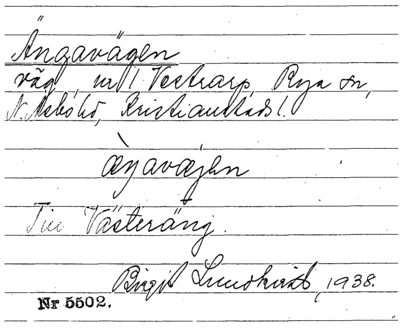 Ängavägen
väg, nr 1 Vestrarp, Rya sn,
N. Åsbo hd, Kristianstads l.
æŋavæjen
Till Västeräng.
Birgit Lundkvist, 1938.
Nr 5502.